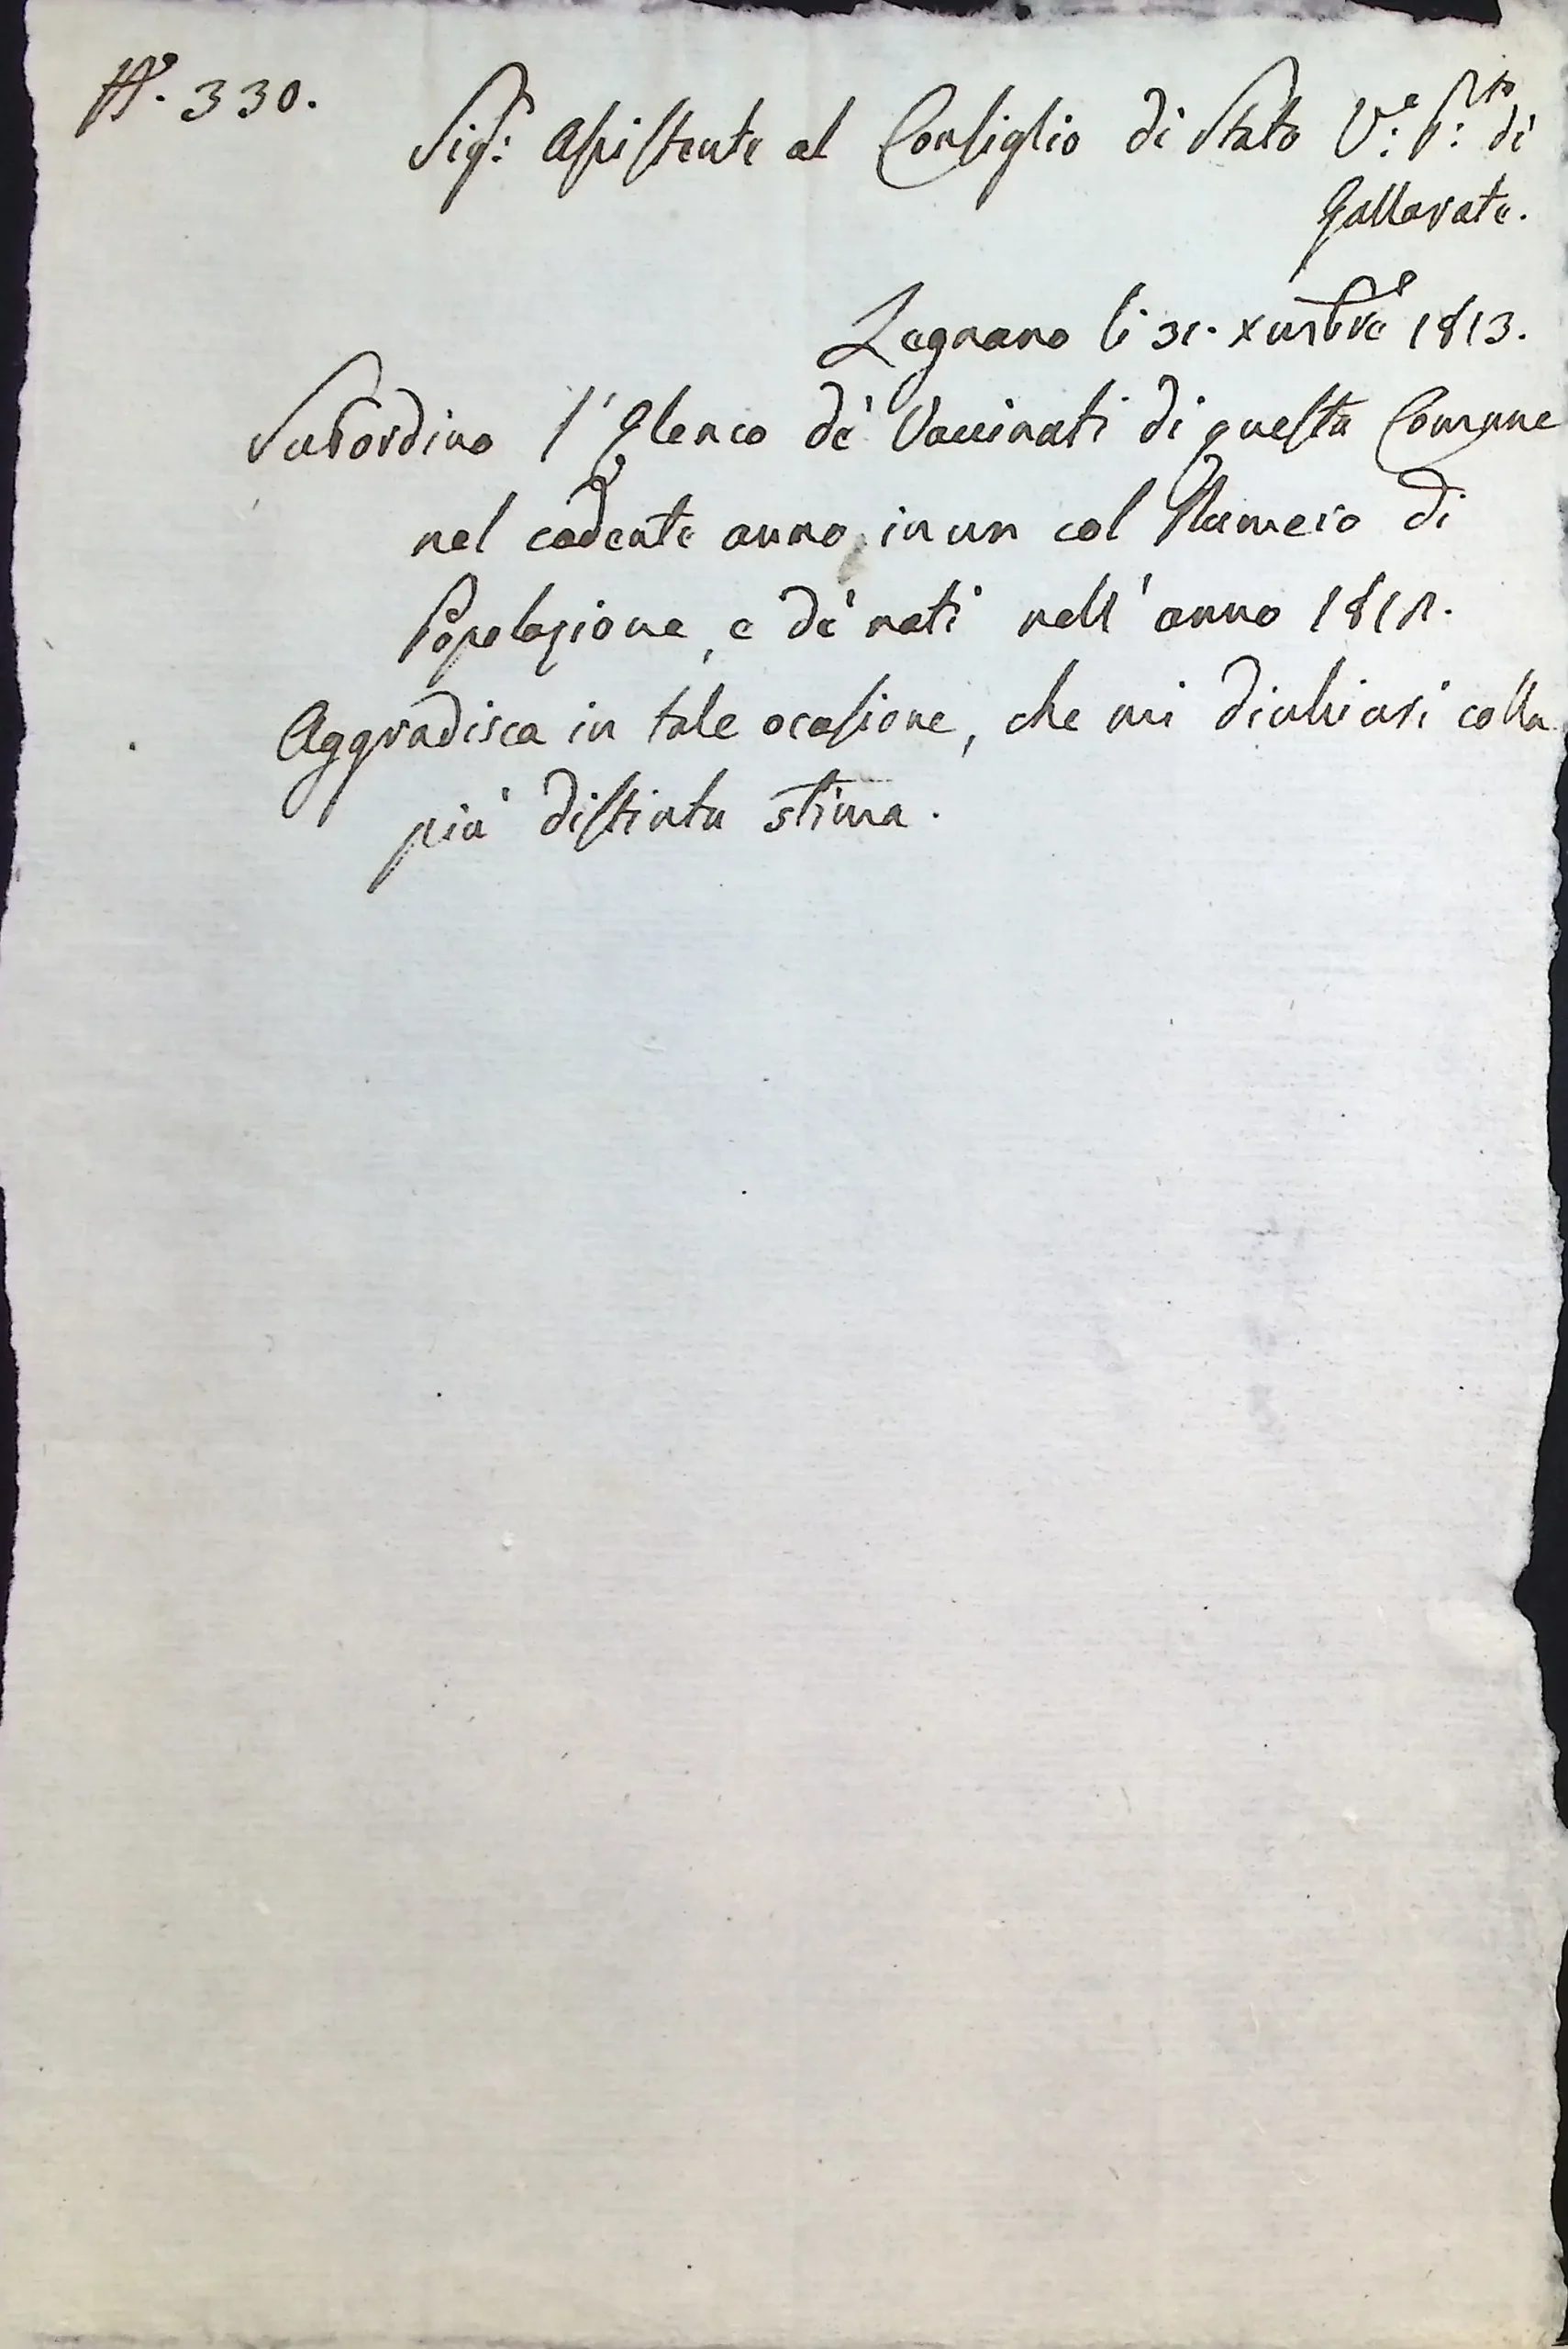 N.° 330.
Sig.r Assistente al Consiglio di Stato V.e P.to di
Gallarate.
Legnano li 31. Xmbre 1813.
Subordino l'Elenco de' Vaccinati di questa Comune
nel cadente anno, in un col Numero di
Popolazione, e de' nati nell'anno
Aggradisca in tale ocasione, che mi dichiari colla
più distinta stima.